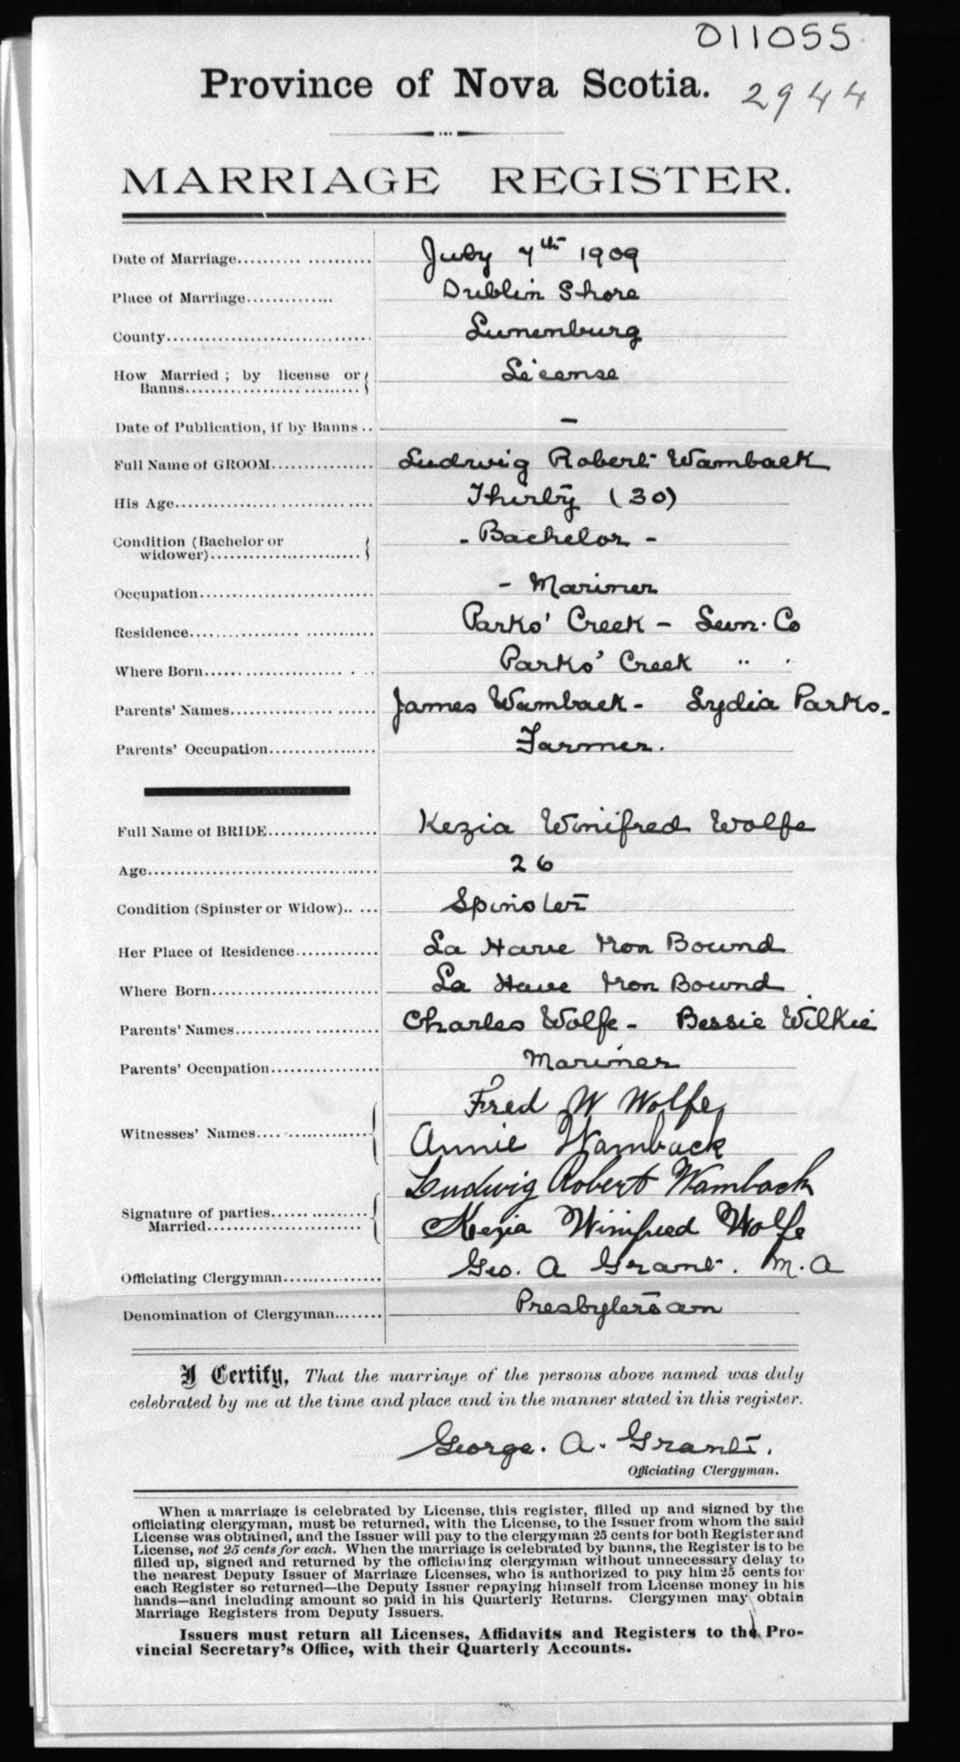 011055
Province of Nova Scotia. 2944
MARRIAGE REGISTER.
Date of Marriage.................... July 7th 1909
Place of Marriage............. Dublin Shore
County............................... Lunenburg
How Married; by license or License
Banns...........................
Date of Publication, if by Banns .. -
Full Name of GROOM............... Ludwig Robert Wamback
His Age.............................. Thirty (30)
Condition (Bachelor or - Bachelor -
widower).......................
Occupation........................... - Mariner
Residence............................ Parks' Creek - Lun. Co
Where Born.......................... Parks' Creek " "
Parents' Names...................... James Wamback - Lydia Parks.
Parents' Occupation................ Farmer.
Full Name of BRIDE................. Kezia Winifred Wolfe
Age................................... 26
Condition (Spinster or Widow).. ... Spinster
Her Place of Residence............ La Have Iron Bound
Where Born......................... La Have Iron Bound
Parents' Names..................... Charles Wolfe - Bessie Wilkie
Parents' Occupation................ Mariner
Fred W Wolfe
Witnesses' Names................... Annie Wamback
Ludwig Robert Wamback
Signature of parties................
Married........................ Kezia Winifred Wolfe
Officiating Clergyman.............. Geo. A Grant. M.A
Denomination of Clergyman....... Presbyterian
I Certify, That the marriage of the persons above named was duly
celebrated by me at the time and place and in the manner stated in this register.
George. A. Grant.
Officiating Clergyman.
When a marriage is celebrated by License, this register, filled up and signed by the
officiating clergyman, must be returned, with the License, to the Issuer from whom the said
License was obtained, and the Issuer will pay to the clergyman 25 cents for both Register and
License, not 25 cents for each. When the marriage is celebrated by banns, the Register is to be
filled up, signed and returned by the officiating clergyman without unnecessary delay to
the nearest Deputy Issuer of Marriage Licenses, who is authorized to pay him 25 cents for
each Register so returned—the Deputy Issuer repaying himself from License money in his
hands—and including amount so paid in his Quarterly Returns. Clergymen may obtain
Marriage Registers from Deputy Issuers.
Issuers must return all Licenses, Affidavits and Registers to the Pro-
vincial Secretary's Office, with their Quarterly Accounts.